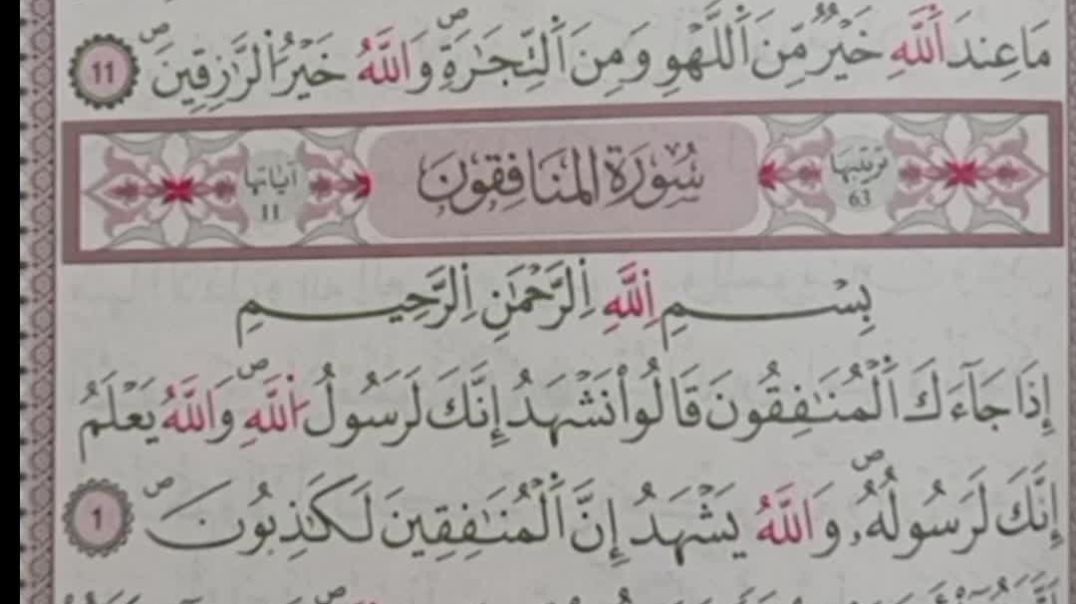 مَا عِندَ اَ۬للَّهِ خَيْرٌ مِّنَ اَ۬للَّهْوِ وَمِنَ اَ۬لتِّجَٰرَةِۖ وَاللَّهُ خَيْرُ اُ۬لرَّٰزِقِينَۖ 11
ترتيبها 63 سُورَةُ المُنَافِقُونَ آياتها 11
بِسْمِ اِ۬للَّهِ اِ۬لرَّحْمَٰنِ اِ۬لرَّحِيمِ
إِذَا جَآءَكَ اَ۬لْمُنَٰفِقُونَ قَالُواْ نَشْهَدُ إِنَّكَ لَرَسُولُ اُ۬للَّهِۖ وَاللَّهُ يَعْلَمُ
إِنَّكَ لَرَسُولُهُۥۖ وَاللَّهُ يَشْهَدُ إِنَّ اَ۬لْمُنَٰفِقِينَ لَكَٰذِبُونَۖ 1